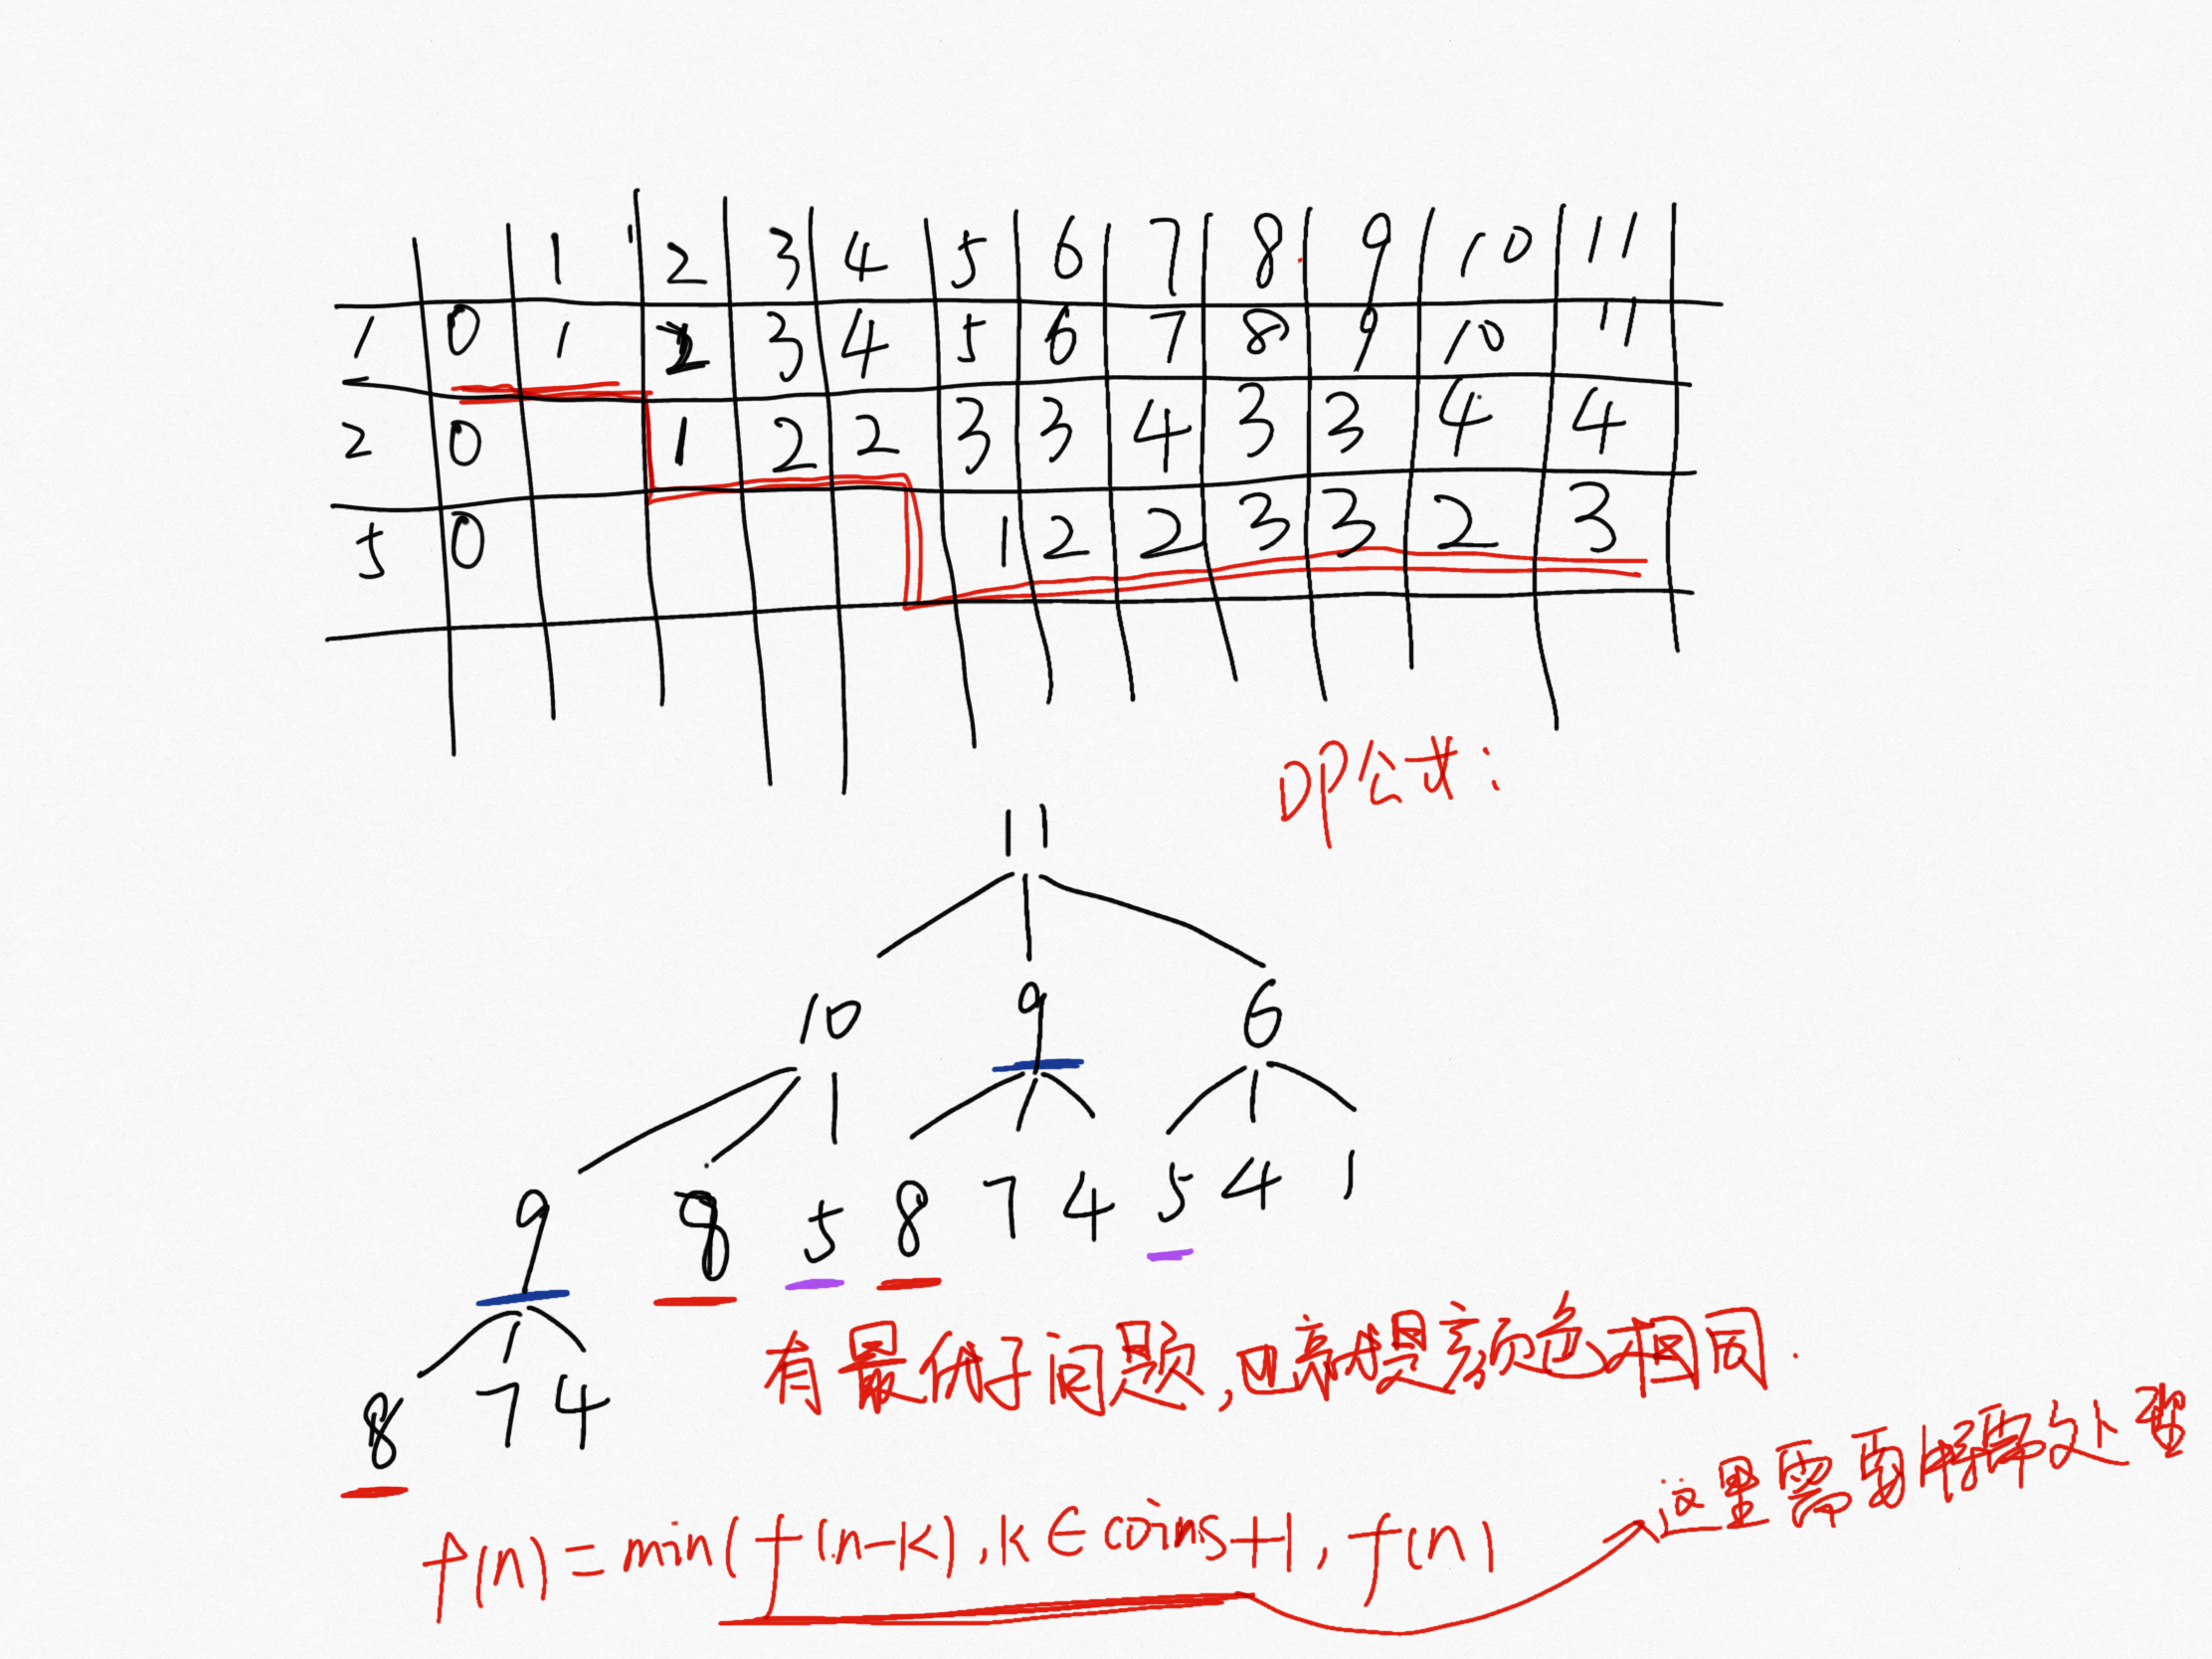 1 2 3 4 5 6 7 8 9 10 11
1 0 1 2 3 4 5 6 7 8 9 10 11
2 0 1 2 2 3 3 4 3 3 4 4
5 0 1 2 2 3 3 2 3
DP公式:
11
10 9 6
9 8 5 8 7 4 5 4 1
8 7 4
有最优子问题,也就是颜色相同.
这里需要解释处理
f(n)=min(f(n-k),k∈coins+1,f(n)